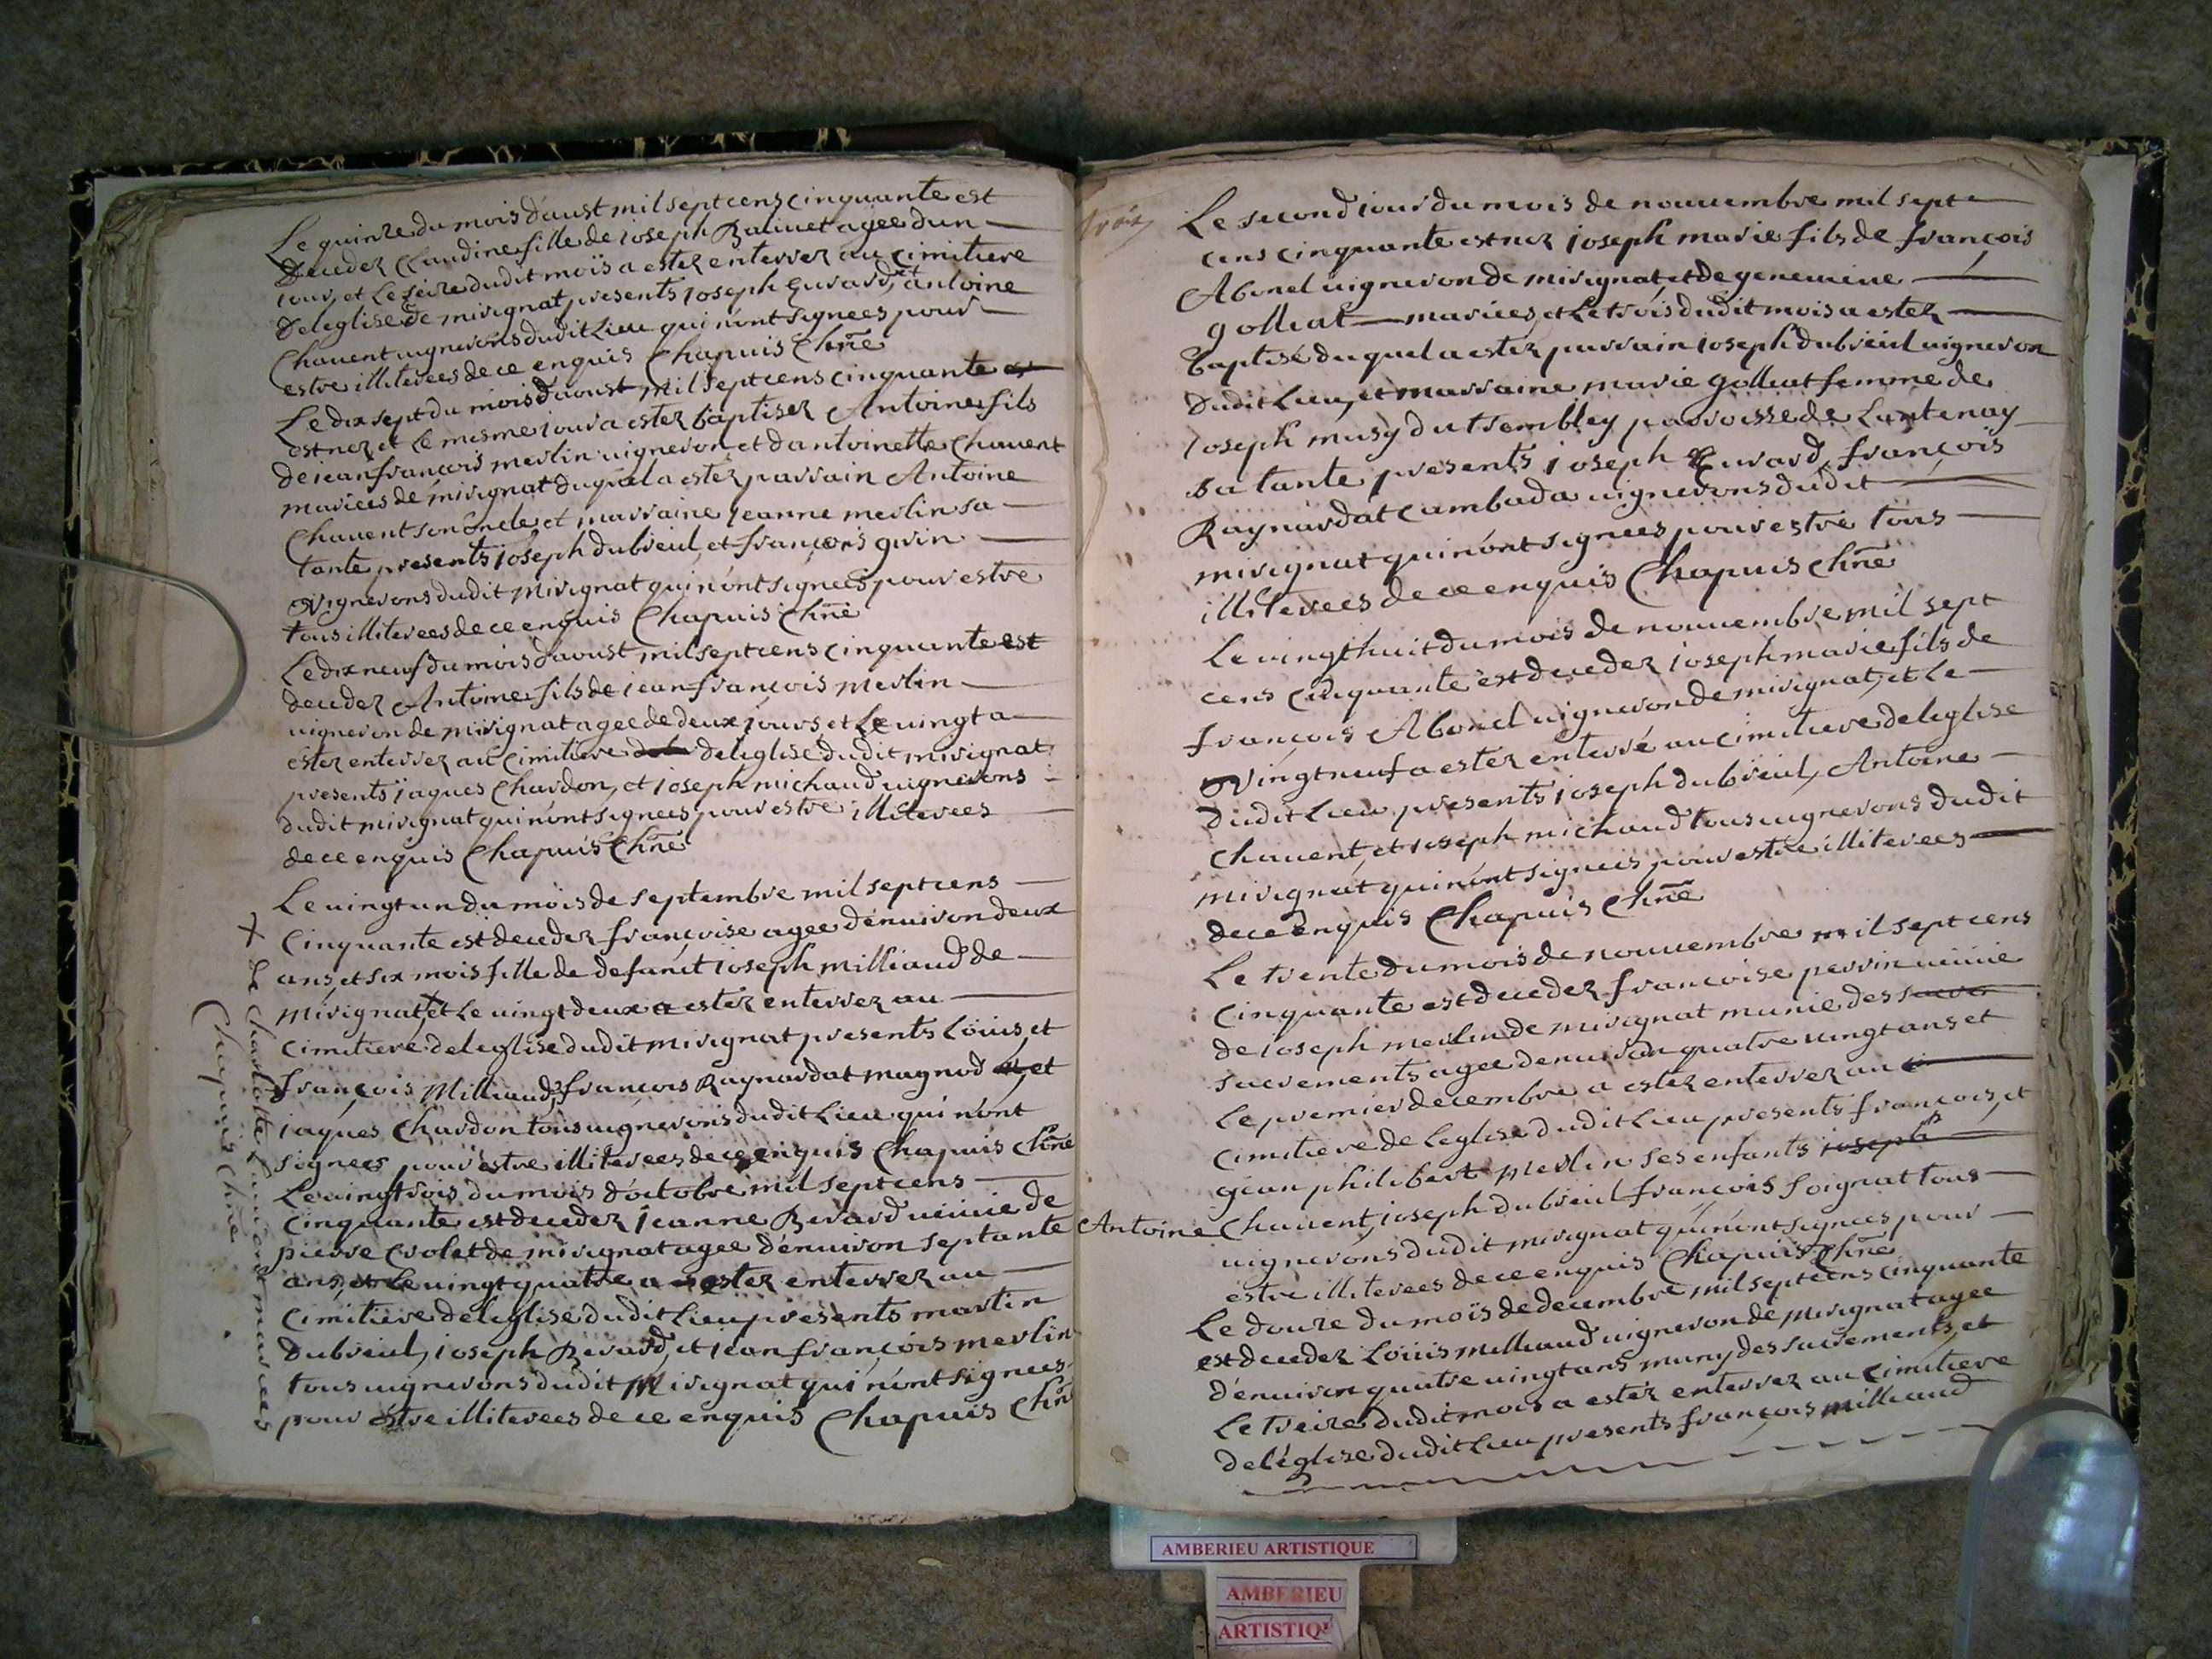 Le quinze du mois d'aust mil sept cens cinquante est
deceder Claudine fille de ioseph agee dun
iour, et le seize dudit mois a ester enterrer au cimitiere
de leglise de mirignat presents ioseph Euvard, et antoine
Chauent uignerons dudit Lieu qui n'ont signees pour
estre illiterees de ce enquis Chapuis Chñe
Le dix sept du mois d'aoust mil sept cens cinquante
est nez et le mesme iour a ester baptiser Antoine fils
de iean francois merlin uigneron et d'antoinette Chauent
mariees de mirignat duquel a ester parrain Antoine
Chauent son oncle et marraine jeanne merlin sa
tante presents ioseph dubreul et francois
vignerons dudit mirignat qui n'ont signees pour estre
tous illiterees de ce enquis Chapuis Chñe
Le dix neuf du mois d'aoust mil sept cens cinquante est
deceder Antoine fils de iean francois merlin
uigneron de mirignat agee de deux jours et Le uingt a
ester enterrer au cimitiere de leglise dudit mirignat
presents iaques Chardon, et ioseph michaud uignerons
dudit mirignat qui n'ont signees pour estre illiterees
de ce enquis Chapuis Chñe
Le uingt un du mois de septembre mil sept cens
Cinquante est deceder françoise agee d'enuiron deux
ans, et six mois fille de defunct ioseph milliaud de
mirignat, + et Le uingt deux a ester enterrer au
Cimitiere de leglise dudit mirignat presents Loüis, et
françois Milliaud, francois Raynardat magnod et
iaques Chardon tous uignerons dudit Lieu qui n'ont
signees pour estre illiterees de ce enquis Chapuis Chñe
Le uingt trois du mois d'octobre mil sept cens
Cinquante est deceder jeanne Berard ueuue de
pierre Crolet de mirignat agee d'enuiron septante
ans, et Le uingt quatre a ester enterrer au
Cimitiere de leglise dudit Lieu presents martin
dubreul, ioseph Berard, et iean françois merlin
tous uignerons dudit Mirignat qui n'ont signees
pour estre illiterees de ce enquis Chapuis Chñ
+ de Charlotte mariees
Chapuis Chñe
Le second iour du mois de nouuembre mil sept
cens cinquante est nez ioseph marie fils de françois
Abonel uigneron de mirignat, et de geneuieue
golleat mariees, et Le trois dudit mois a ester
baptisé duquel a ester parrain ioseph dubreul uigneron
dudit Lieu, et marraine marie golleat femme de
ioseph musy du trembley parroisse de Lantenay
sa tante presents ioseph Euvard, françois
Raynardat Cambada uignerons dudit
mirignat qui n'ont signees pour estre tous
illiterees de ce enquis Chapuis Chñe
Le uingt huit du mois de nouuembre mil sept
cens cinquante est deceder ioseph marie fils de
françois Abonel uigneron de mirignat, et Le
Vingt neuf a ester enterré au cimitiere de leglise
dudit Lieu presents ioseph dubreul, Antoine
Chauent, et ioseph michaud tous uignerons dudit
mirignat qui n'ont signees pour estre illiterees
de ce enquis Chapuis Chñe
Le trente du mois de nouuembre mil sept cens
Cinquante est deceder francoise perrin ueuue
de ioseph merlin de mirignat munie des
sacrements agee d'enuiron quatre uingt ans et
Le premier decembre a ester enterrer au
Cimitiere de Leglise dudit Lieu presents francois, et
gean philibert Merlin ses enfants ioseph
Antoine Chauent, ioseph dubreul françois soignat tous
uignerons dudit mirignat qui n'ont signees pour
estre illiterees de ce enquis Chapuis Chñe
Le douze du mois de decembre mil sept cens cinquante
est deceder Loüis milliaud uigneron de mirignat agee
d'enuiron quatre uingt ans muny des sacrements, et
Le treize dudit mois a ester enterrer au Cimitiere
de l'eglise dudit Lieu presents françois milliaud
AMBERIEU ARTISTIQUE
AMBERIEU
ARTISTIQU